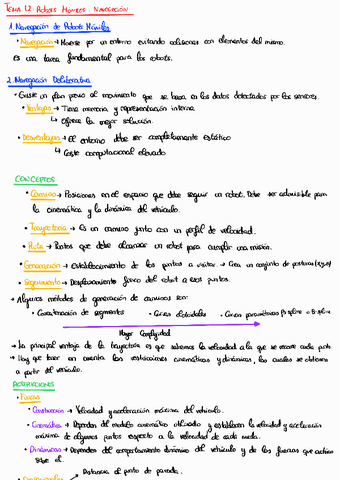 TEMA 12. ROBOTS MÓVILES. NAVEGACIÓN
1. Navegación de Robots Móviles
• Navegación → Moverse por un entorno evitando colisiones con elementos del mismo.
Es una tarea fundamental para los robots.
2. Navegación Deliberativa
• Existe un plan previo al movimiento que se basa en los datos detectados por los sensores.
• Ventajas → Tiene memoria y representación interna
↳ Ofrece la mejor solución.
• Desventajas → El entorno debe ser completamente estático
↳ Coste computacional elevado
CONCEPTOS
• Camino → Posiciones en el espacio que debe seguir un robot. Debe ser admisible para
la cinemática y la dinámica del vehículo.
• Trayectoria → Es un camino junto con un perfil de velocidad.
• Ruta → Puntos que debe alcanzar un robot para cumplir una misión.
• Generación → Establecimiento de los puntos a visitar → Crea un conjunto de posturas
• Seguimiento → Desplazamiento físico del robot a esos puntos.
→ Algunos métodos de generación de caminos son:
• Concatenación de segmentos • Curvas • Curvas paramétricas
Mayor Complejidad
→ La principal ventaja de la trayectoria es que sabemos la velocidad a la que se recorre cada punto
→ Hay que tener en cuenta las restricciones cinemáticas y dinámicas, las cuales se obtienen
a partir del vehículo.
RESTRICCIONES
• Físicas
• Construcción → Velocidad y aceleración máxima del vehículo.
• Cinemática → Dependen del modelo cinemático utilizado y establecen la velocidad y aceleración
máxima de algunos puntos respecto a la velocidad de cada rueda.
• Dinámicas → Dependen del comportamiento dinámico del vehículo y de las fuerzas que actúan
sobre él.
Distancia al punto de parada.